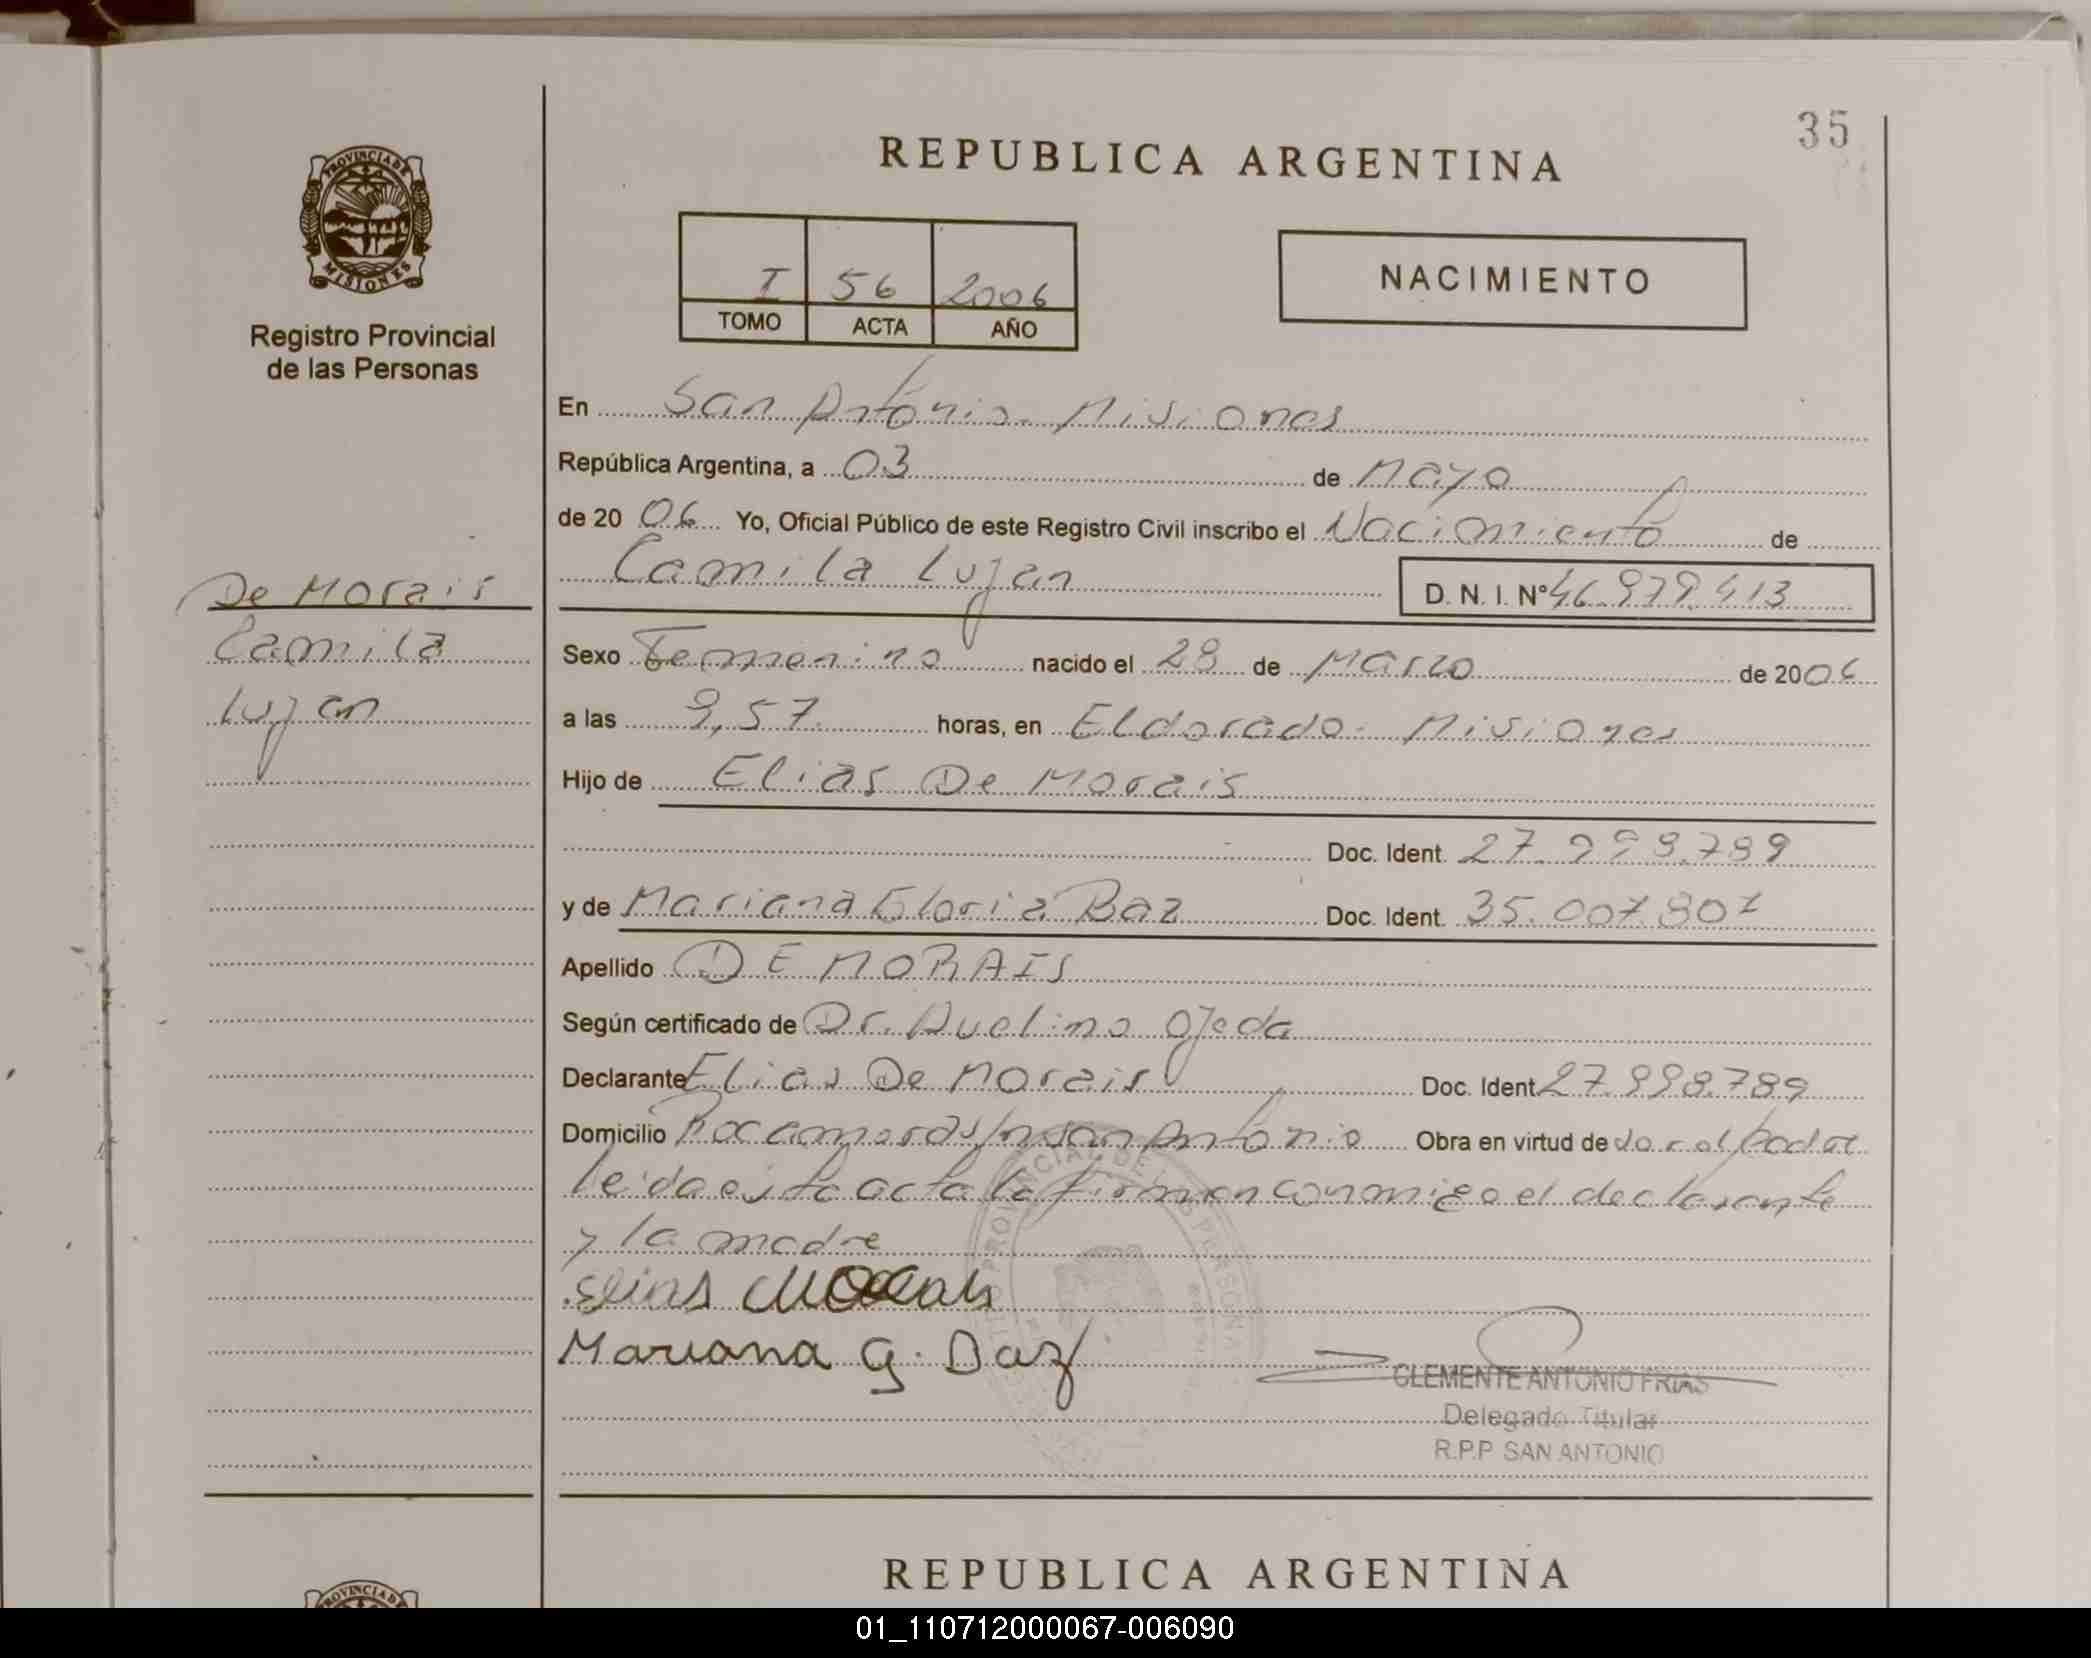 35
REPUBLICA ARGENTINA
PROVINCIA DE MISIONES
Registro Provincial
de las Personas
I 56 2006
TOMO ACTA AÑO
NACIMIENTO
En San Antonio Misiones
República Argentina, a 03 de Mayo
de 2006 Yo, Oficial Público de este Registro Civil inscribo el Nacimiento de
Camila Lujan
D. N. I. Nº 46.979.413
De Morais
Camila
Lujan
Sexo Femenino nacido el 28 de Marzo de 2006
a las 9,57 horas, en Eldorado - Misiones
Hijo de Elias De Morais
Doc. Ident. 27.998.789
y de Mariana Gloria Baz Doc. Ident. 35.007.807
Apellido DE MORAIS
Según certificado de Dr. Avelino Ojeda
Declarante Elias De Morais Doc. Ident 27.998.789
Domicilio Rocamora s/n San Antonio Obra en virtud de
leida esta acta la firman conmigo el declarante
y la madre
Mariana G. Baz
CLEMENTE ANTONIO FRIAS
Delegado Titular
R.P.P SAN ANTONIO
REPUBLICA ARGENTINA
PROVINCIA DE
01_110712000067-006090